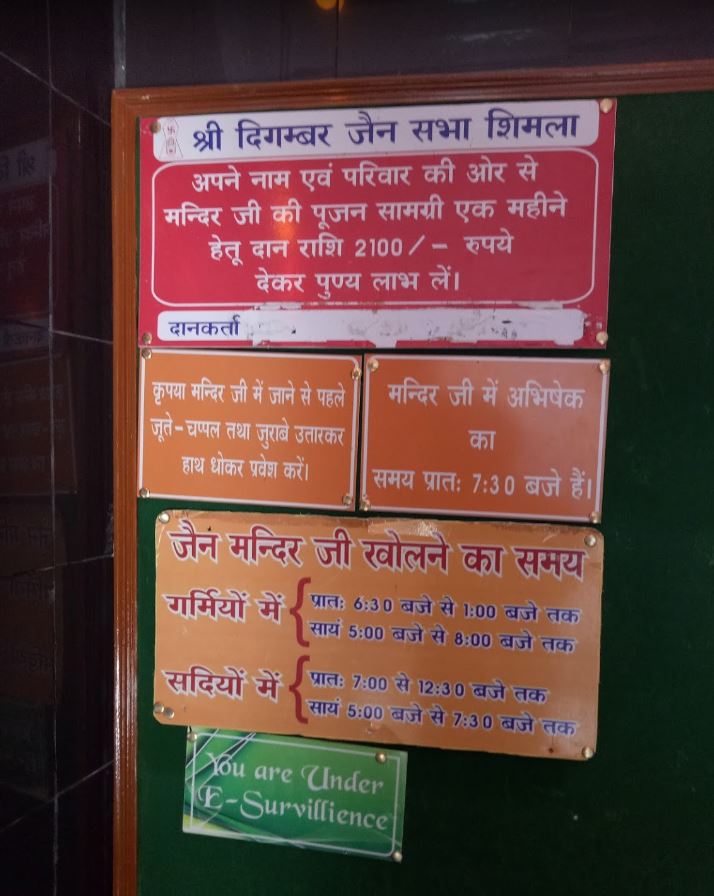 श्री दिगम्बर जैन सभा शिमला
अपने नाम एवं परिवार की ओर से
मन्दिर जी की पूजन सामग्री एक महीने
हेतू दान राशि 2100/- रुपये
देकर पुण्य लाभ लें।
दानकर्ता
कृपया मन्दिर जी में जाने से पहले
जूते-चप्पल तथा जुराबे उतारकर
हाथ धोकर प्रवेश करें।
मन्दिर जी में अभिषेक
का
समय प्रातः 7:30 बजे हैं।
जैन मन्दिर जी खोलने का समय
गर्मियों में
प्रातः 6:30 बजे से 1:00 बजे तक
सायं 5:00 बजे से 8:00 बजे तक
सदियों में
प्रातः 7:00 से 12:30 बजे तक
सायं 5:00 बजे से 7:30 बजे तक
You are Under
E-Survillience